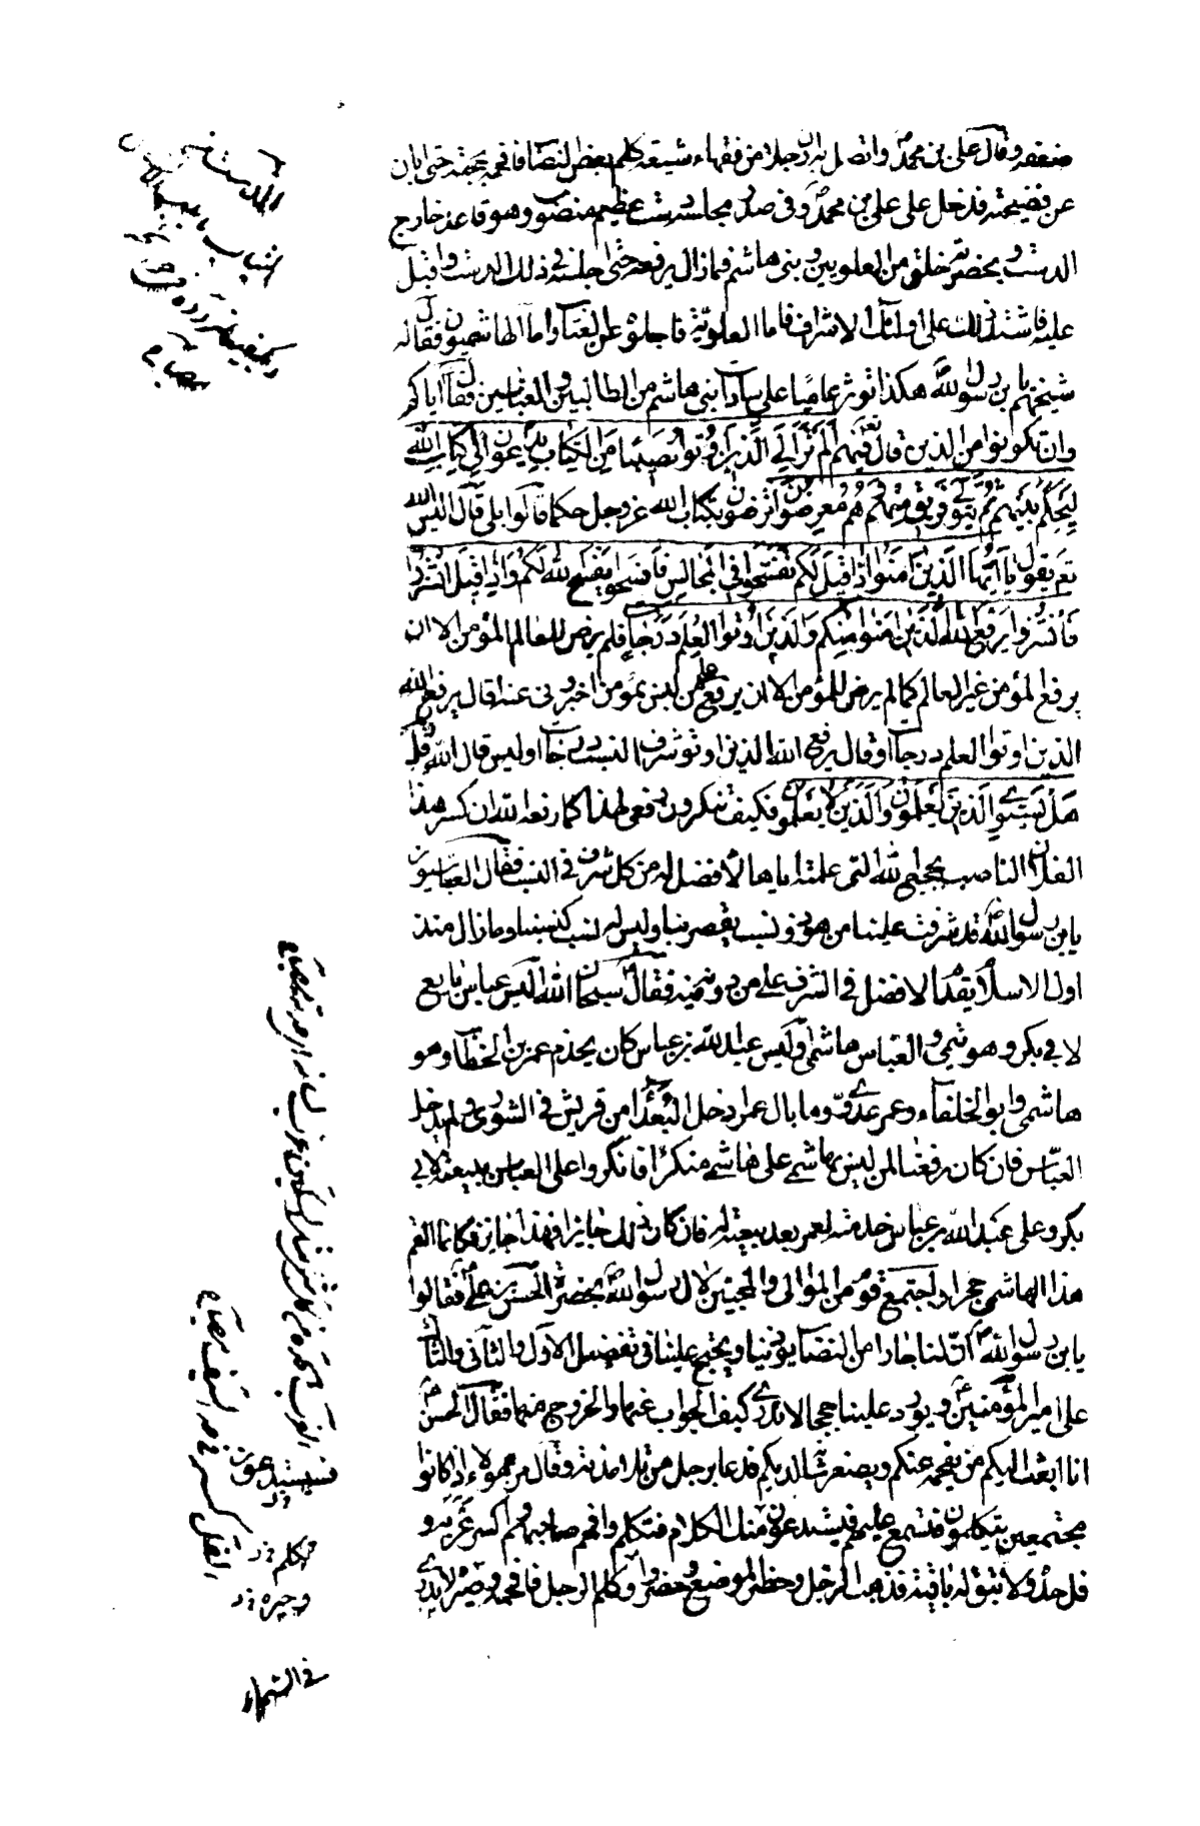 ضعفه وقال علي بن محمد واتصل به ان رجلا من فقهاء شيعته كلم بعض النصاب فافحمه بحجته حتى ابان
عن فضيحته فدخل على علي بن محمد وفي صدر مجلسه دست عظيم منصوب وهو قاعد خارج
الدست وبحضرته خلق من العلويين وبني هاشم فما زال يرفعه حتى اجلسه في ذلك الدست واقبل
عليه فاشتد ذلك على اولئك الاشراف فاما العلوية فاجلوه عن العتاب واما الهاشميون فقال له
شيخهم يابن رسول الله هكذا تؤثر عاميا على سادات بني هاشم من الطالبيين والعباسيين فقال اياكم
وان تكونوا من الذين قال تع فيهم الم تر الى الذين اوتوا نصيبا من الكتاب يدعون الى كتاب الله
ليحكم بينهم ثم يتولى فريق منهم وهم معرضون اترضون بكتاب الله عز وجل حكما قالوا بلى قال اليس الله
تع يقول يا ايها الذين امنوا اذا قيل لكم تفسحوا في المجالس فافسحوا يفسح الله لكم واذا قيل انشزوا
فانشزوا يرفع الله الذين امنوا منكم والذين اوتوا العلم درجات فلم يرض للعالم المؤمن الا ان
يرفع المؤمن غير العالم كما لم يرض للمؤمن الا ان يرفع على من ليس بمؤمن اخبروني عنه اقال يرفع الله
الذين اوتوا العلم درجات او قال يرفع الله الذين اوتوا شرف النسب درجات او ليس قال الله قل
هل يستوي الذين يعلمون والذين لا يعلمون فكيف تنكرون رفعي لهذا كما رفعه الله ان كسر هذا
الفلان الناصب بحجج الله التي علمه اياها لافضل له من كل شرف في النسب فقال العباسيون
يابن رسول الله قد شرفت علينا من هو ذو نسب يقصر بنا وليس له نسب كنسبنا وما زال منذ
اول الاسلام يقدم الافضل في الشرف على من دونه فيه فقال سبحان الله اليس عباس بايع
لابي بكر وهو تيمي والعباس هاشمي اوليس عبد الله بن عباس كان يخدم عمر بن الخطاب وهو
هاشمي وابو الخلفاء وعمر عدوي وما بال عمر ادخل البعداء من قريش في الشورى ولم يدخل
العباس فان كان رفعنا لمن ليس بهاشمي على هاشمي منكرا فانكروا على العباس بيعته لابي
بكر وعلى عبد الله بن عباس خدمته لعمر بعد بيعته له فان كان ذلك جايزا فهذا جايز فكانما القم
هذا الهاشمي حجرا واجتمع قوم من الموالي والمحبين لال رسول الله بحضرة الحسن بن علي فقالوا
يابن رسول الله ان لنا جارا من النصاب يؤذينا ويحتج علينا في تفضيل الاول والثاني والثالث
على امير المؤمنين ويورد علينا حججا لا ندري كيف الجواب عنها والخروج منها فقال الحسن
انا ابعث اليكم من يفحمه عنكم ويصغر شانه لديكم فدعا برجل من تلامذته وقال مر بهؤلاء اذا كانوا
مجتمعين يتكلمون فتسمع عليهم فيستدعون منك الكلام فتكلم وافحم صاحبهم واكسر غرته و
فل حده ولا تبق له باقية فذهب الرجل وحضر الموضع وحضروا وكلم الرجل فافحمه وصيره لا يدري
فيستدعون
تكلم
وحيره
في السماء